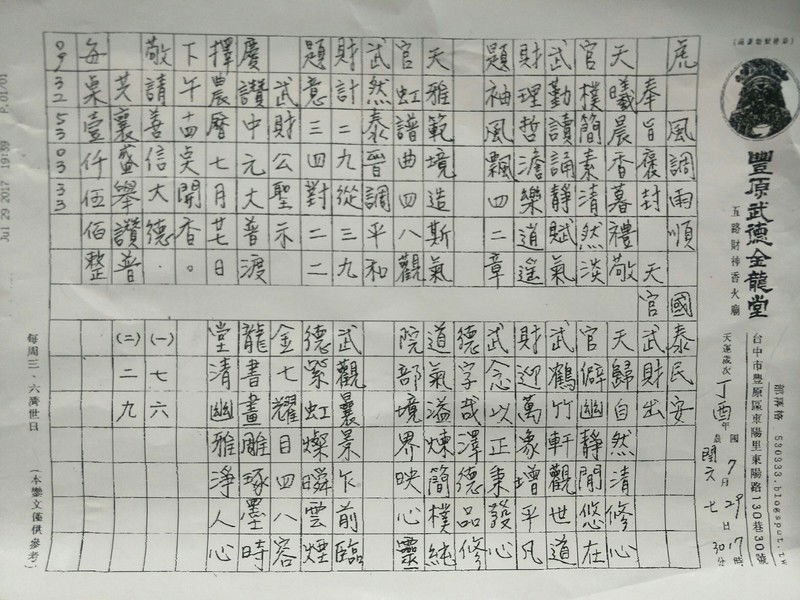 (錄製鸞敬彰)
豐原武德金龍堂
五路財神香火廟
台中市豐原區東陽里東陽路130巷30號
530333.blogspot.tw
天運歲次丁酉年 國 7月29日17時30分
虎 風調雨順 國泰民安
奉旨褒封 天官武財出
天曦晨香暮禮敬
官樸簡素清然淡
武勤讀誦靜賦氣
財理哲澹樂道遙
題袖風飄四二章
天雅範境造斯氣
官虹譜曲四八觀
武然泰晉調平和
財計二九從三九
題意三四對二二
武財公聖示
慶讚中元大普渡
擇農曆七月廿七日
下午十奌開香。
敬請善信大德.
芡襄盛舉讚普
每桌壹仟伍佰整
0932530333
天歸自然清修心
官僻幽靜閒悠在
武鶴竹軒觀世道
財迎萬象增平凡
武念以正秉發心
德字哉澤德品修
道氣溢煉簡樸純
院部境界映心靈
武觀襄景乍前臨
德紫虹燦瞬雲煙
金七耀目四八容
龍書畫雕琢墨時
堂清幽雅淨人心
(一)七六
(二)二九
每周三、六濟世日
(本鸞文僅供參考)
Jul 29 2017 19:59 P.01/01